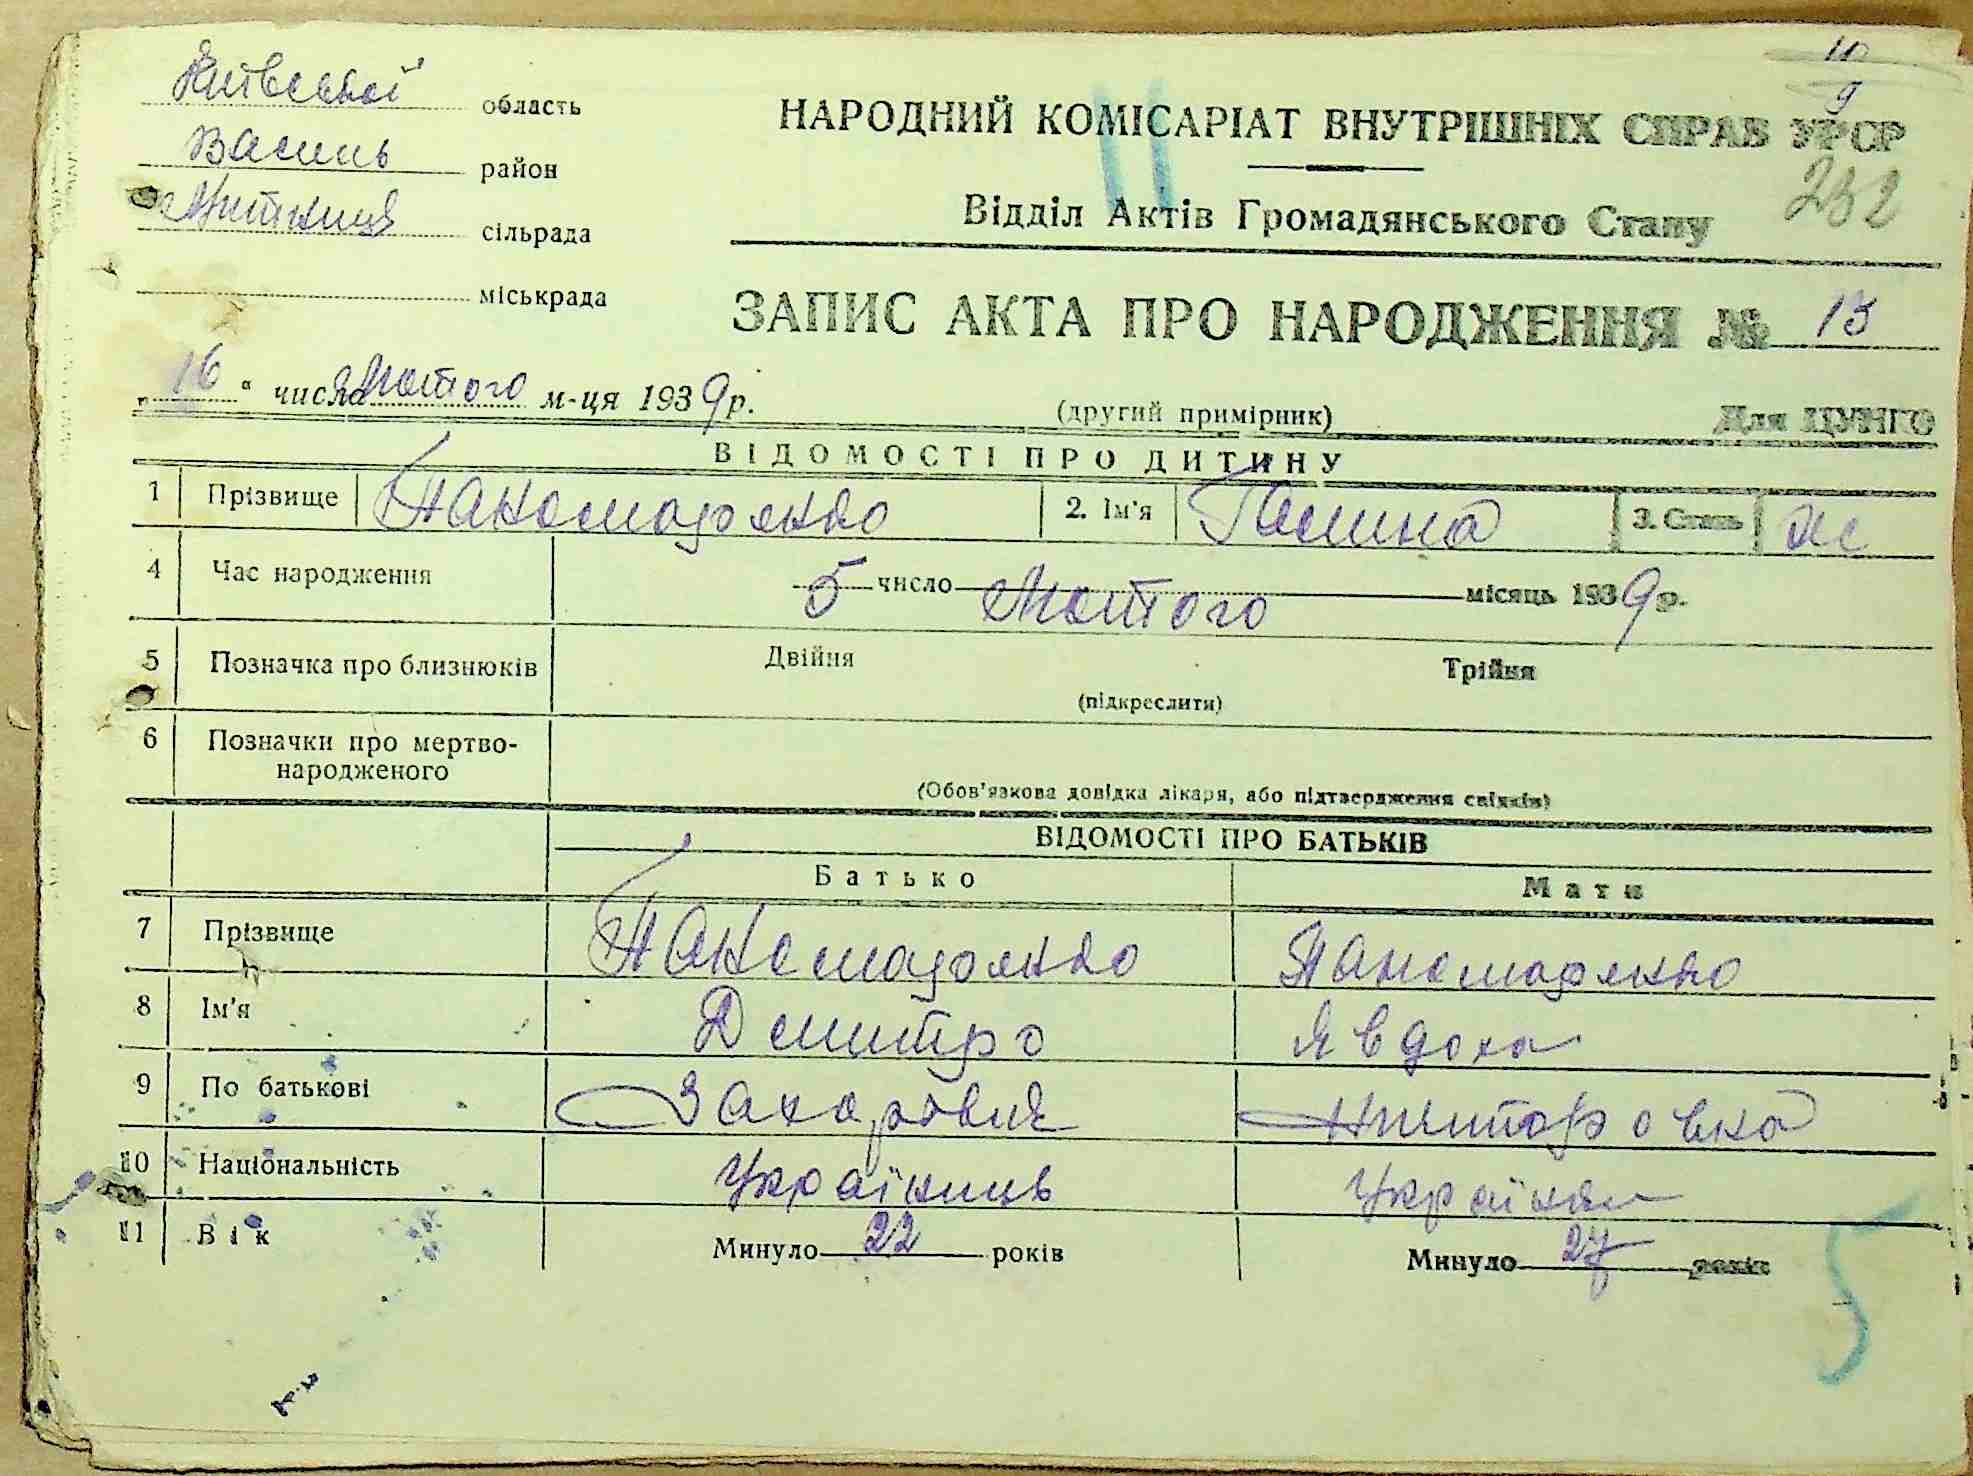 Київської область
Василь район
Митниця сільрада
міськрада
10
9
НАРОДНИЙ КОМІСАРІАТ ВНУТРІШНІХ СПРАВ УРСР
11
Відділ Актів Громадянського Стану
232
ЗАПИС АКТА ПРО НАРОДЖЕННЯ № 13
„16“ числа Лютого м-ця 1939 р.
(другий примірник)
Для ЦУНГО
ВІДОМОСТІ ПРО ДИТИНУ
1 Прізвище Панамаренко 2. Ім'я Галина 3. Стать ж
4 Час народження 5 число Лютого місяць 1939 р.
5 Позначка про близнюків Двійня Трійня
(підкреслити)
6 Позначки про мертво-
народженого
(Обов'язкова довідка лікаря, або підтвердження свідків)
ВІДОМОСТІ ПРО БАТЬКІВ
Батько Мати
7 Прізвище Панамаренко Панамаренко
8 Ім'я Дмитро Явдоха
9 По батькові Захарович
10 Національність Українць Українка
11 Вік Минуло 22 років Минуло 27 років
5